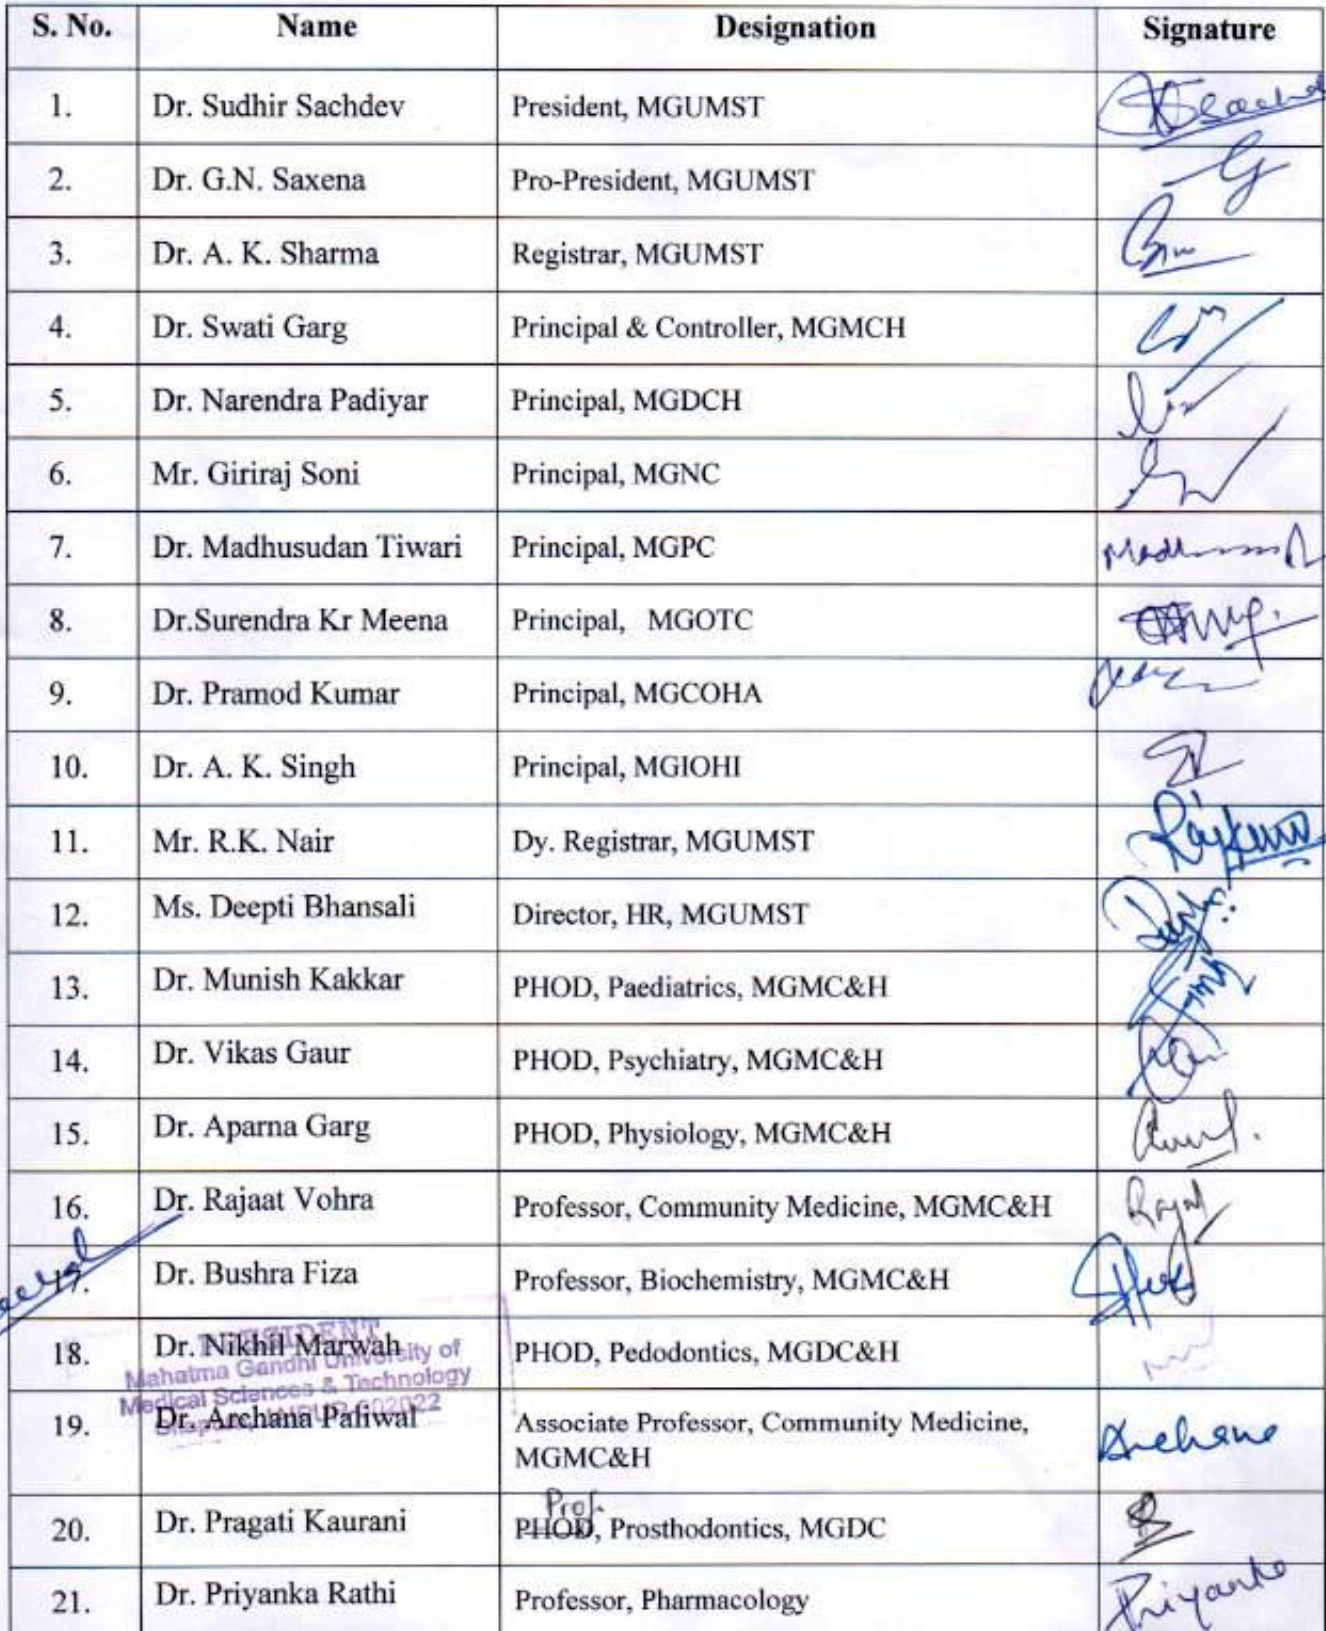 S. No. Name Designation Signature
1. Dr. Sudhir Sachdev President, MGUMST
2. Dr. G.N. Saxena Pro-President, MGUMST
3. Dr. A. K. Sharma Registrar, MGUMST
4. Dr. Swati Garg Principal & Controller, MGMCH
5. Dr. Narendra Padiyar Principal, MGDCH
6. Mr. Giriraj Soni Principal, MGNC
7. Dr. Madhusudan Tiwari Principal, MGPC
8. Dr.Surendra Kr Meena Principal, MGOTC
9. Dr. Pramod Kumar Principal, MGCOHA
10. Dr. A. K. Singh Principal, MGIOHI
11. Mr. R.K. Nair Dy. Registrar, MGUMST Rajkumar
12. Ms. Deepti Bhansali Director, HR, MGUMST
13. Dr. Munish Kakkar PHOD, Paediatrics, MGMC&H
14. Dr. Vikas Gaur PHOD, Psychiatry, MGMC&H
15. Dr. Aparna Garg PHOD, Physiology, MGMC&H
16. Dr. Rajaat Vohra Professor, Community Medicine, MGMC&H Rajat
17. Dr. Bushra Fiza Professor, Biochemistry, MGMC&H
PRESIDENT
18. Dr. Nikhil Marwah PHOD, Pedodontics, MGDC&H
Mahatma Gandhi University of
Medical Sciences & Technology
19. Dr. Archana Paliwal Associate Professor, Community Medicine, Archana
MGMC&H
Prof.
20. Dr. Pragati Kaurani PHOD, Prosthodontics, MGDC
21. Dr. Priyanka Rathi Professor, Pharmacology Priyanka